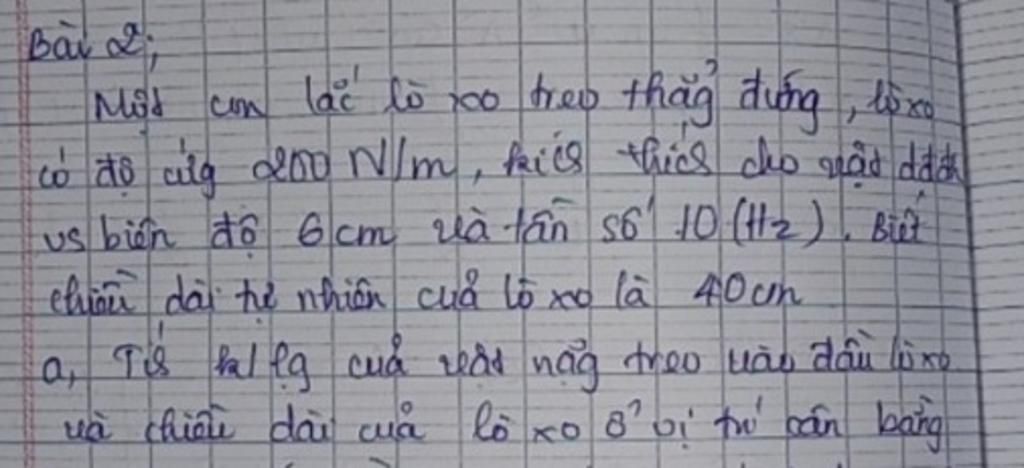 Bài 2;
Một con lắc lò xo treo thẳg đứng, lò xo
có độ cứg 200 N/m, kích thích cho vật dđđh
vs biên độ 6 cm và tần số 10 (Hz). Biết
chiều dài tự nhiên của lò xo là 40 cm
a, Tís kl lg của vật nặg treo vào đầu lò xo
và chiều dài của lò xo ở vị trí cân bằng